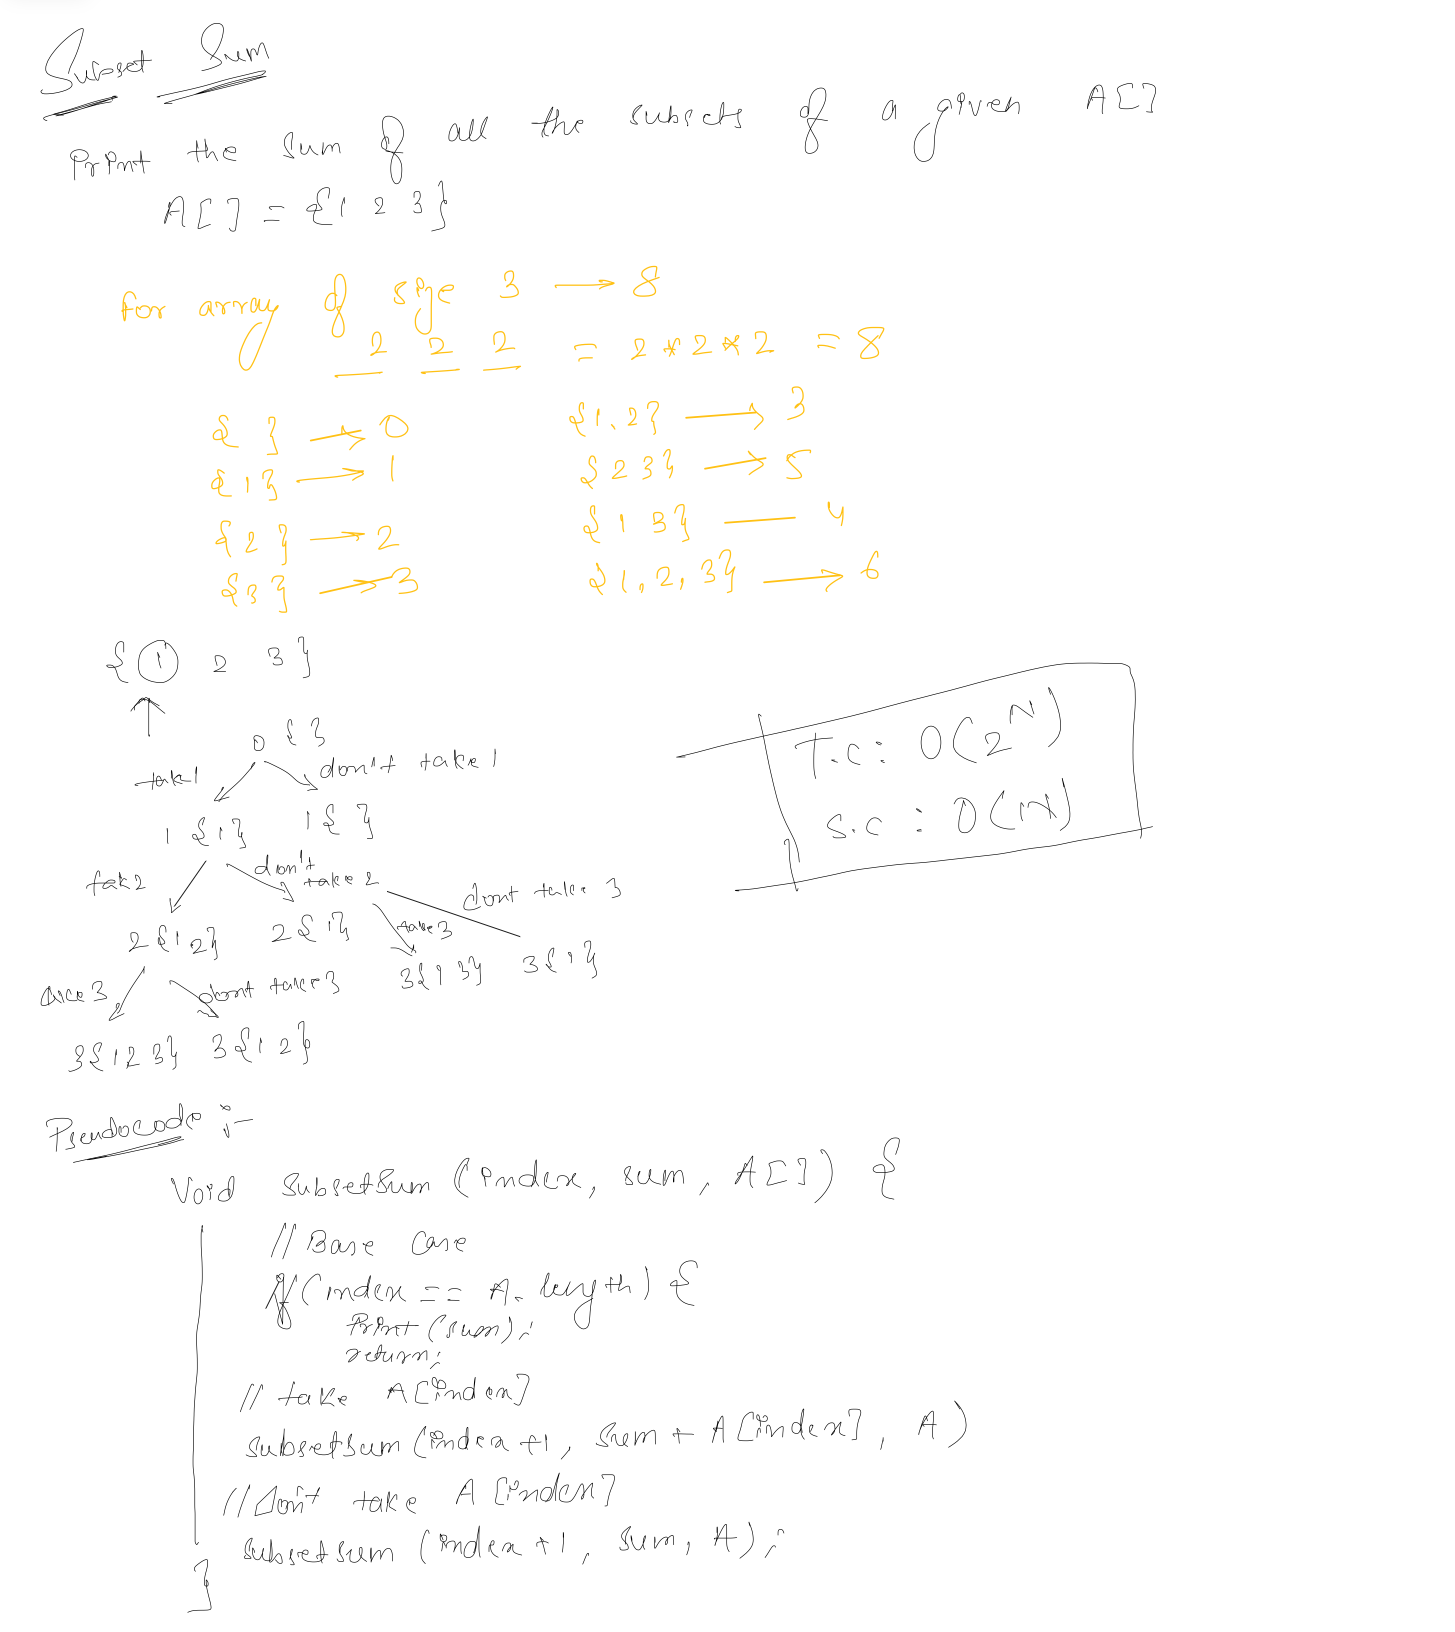 Subset Sum
Print the sum of all the subsets of a given A[]
A[] = {1 2 3}
for array of size 3 → 8
2 2 2 = 2 * 2 * 2 = 8
{ } → 0
{1} → 1
{2} → 2
{3} → 3
{1, 2} → 3
{2 3} → 5
{1 3} — 4
{1, 2, 3} → 6
{1 2 3}
0 { }
take 1 don't take 1
1 {1} 1 { }
tak 2 don't take 2
2 {1 2} 2 {1}
take 3 dont take 3
3{1 3} 3{1}
take 3 dont take 3
3{1 2 3} 3{1 2}
T.C : O(2^N)
S.C : O(N)
Pseudocode :-
Void SubsetSum (index, sum, A[]) {
// Base Case
if (index == A.length) {
Print (sum);
return;
// take A[index]
subsetsum (index +1, sum + A[index], A)
// Don't take A[index]
subsetsum (index +1, sum, A);
}